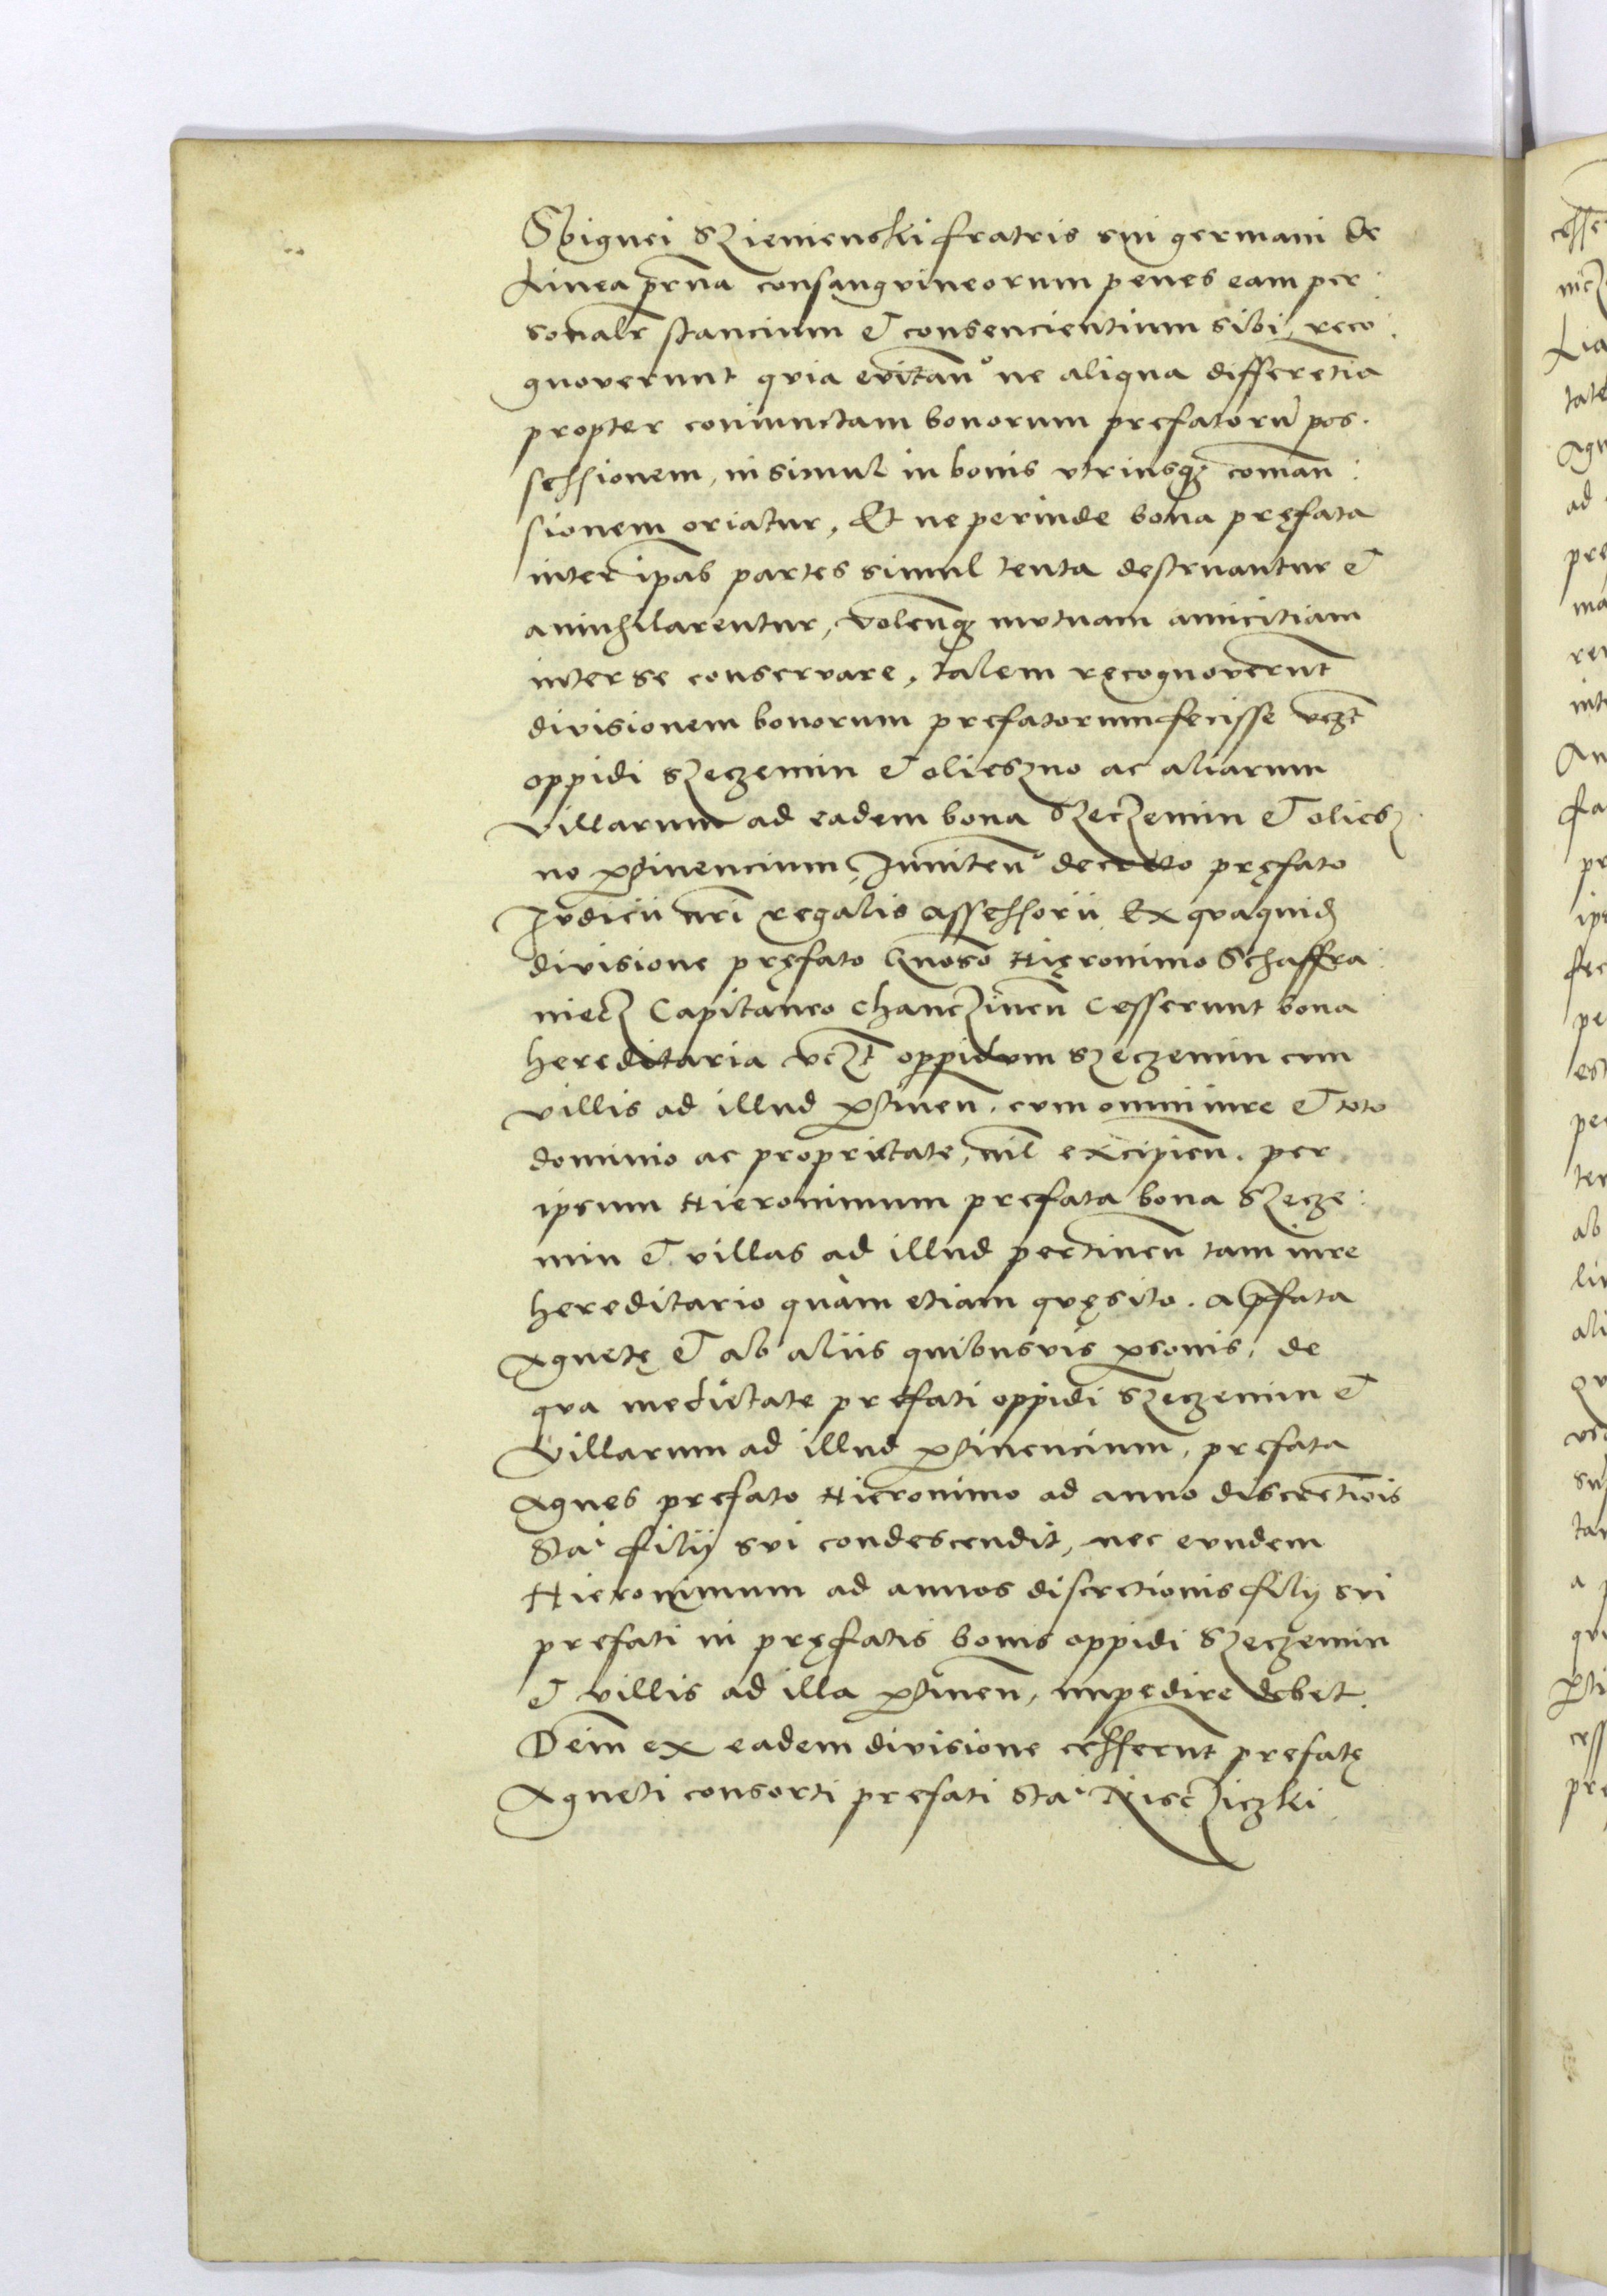 Sbignei Szienienski fratris sui germani de
Linea pr̃na consangvineorum penes eam per
sonalr̃ stancium et consencientium sibi, reco
gnoverunt qvia evitan̄o ne aliqua differētia
propter coniunctam bonorum prefatorū pos.
sessionem, insimul in bonis vtriusq3 coman
sionem oriatur, Et ne perinde bona pręfata
inter ip̄as partes simul tenta destruantur et
aninhilarentur, volen̄q3 mvtuam amicitiam
inter se conservare, talem recognoverūt
divisionem bonorum prefatorum fecisse vcz̄t
oppidi Szeczemin et olieszno ac aliarum
villarum ad eadem bona Szeczemin et oliesz
no ptinencium, Inniten̄o decreto pręfato
Jvdicii nr̄i regalis assessorii Ex qvaquid̄
divisione pręfato Gnoso Hięronimo Schaffra
niecz Capitaneo Chanczinen̄ Cesserunt bona
hereditaria vcz̄t oppidvm Szeczemin cvm
villis ad illud ptinen̄. cvm omni iure et toto
dominio ac proprietate, nil̄ excipien̄. per
ipsum Hieronimum prefata bona Szecze
min et villas ad illud pertinen̄ tam iure
hereditario quàm etiam qvęsito. a p̄fata
Agnetę et ab aliis quibusvis psonis, de
qva medietate prefati oppidi Szeczemin et
villarum ad illud ptinencium, prefata
Agnes prefato Hieronimo ad anno discretīōis
Stai filij svi condescendit, nec evndem
Hieronimum ad annos discretionis filij svi
prefati in pręfatis bonis oppidi Szeczemin
et villis ad illa ptinen̄, impedire debet.
Dein̄ ex eadem divisione cesserūt prefatę
Agneti consorti prefati Stai Riscziczki